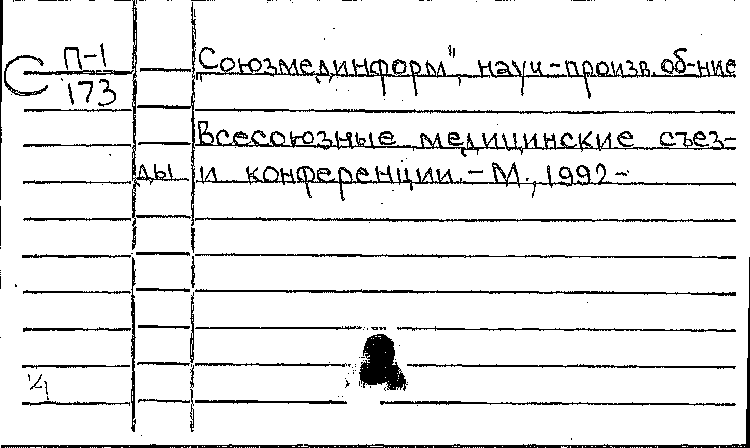 С П-1
173
"Союзмединформ", науч-произв. об-ние
Всесоюзные медицинские съез-
ды и конференции.- М., 1992-